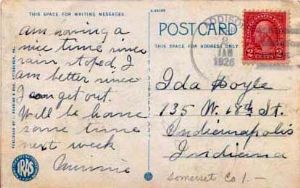 THIS SPACE FOR WRITING MESSAGES.
POSTCARD
THIS SPACE FOR ADDRESS ONLY
am having a
nice time since
rain stoped. I
am better since
I can get out.
Will be home
some time
next week
Minnie
JAN
1926
Ida Hoyle
135 W. 18th St.
Indianapolis
Indiana
Somerset Co 1.-